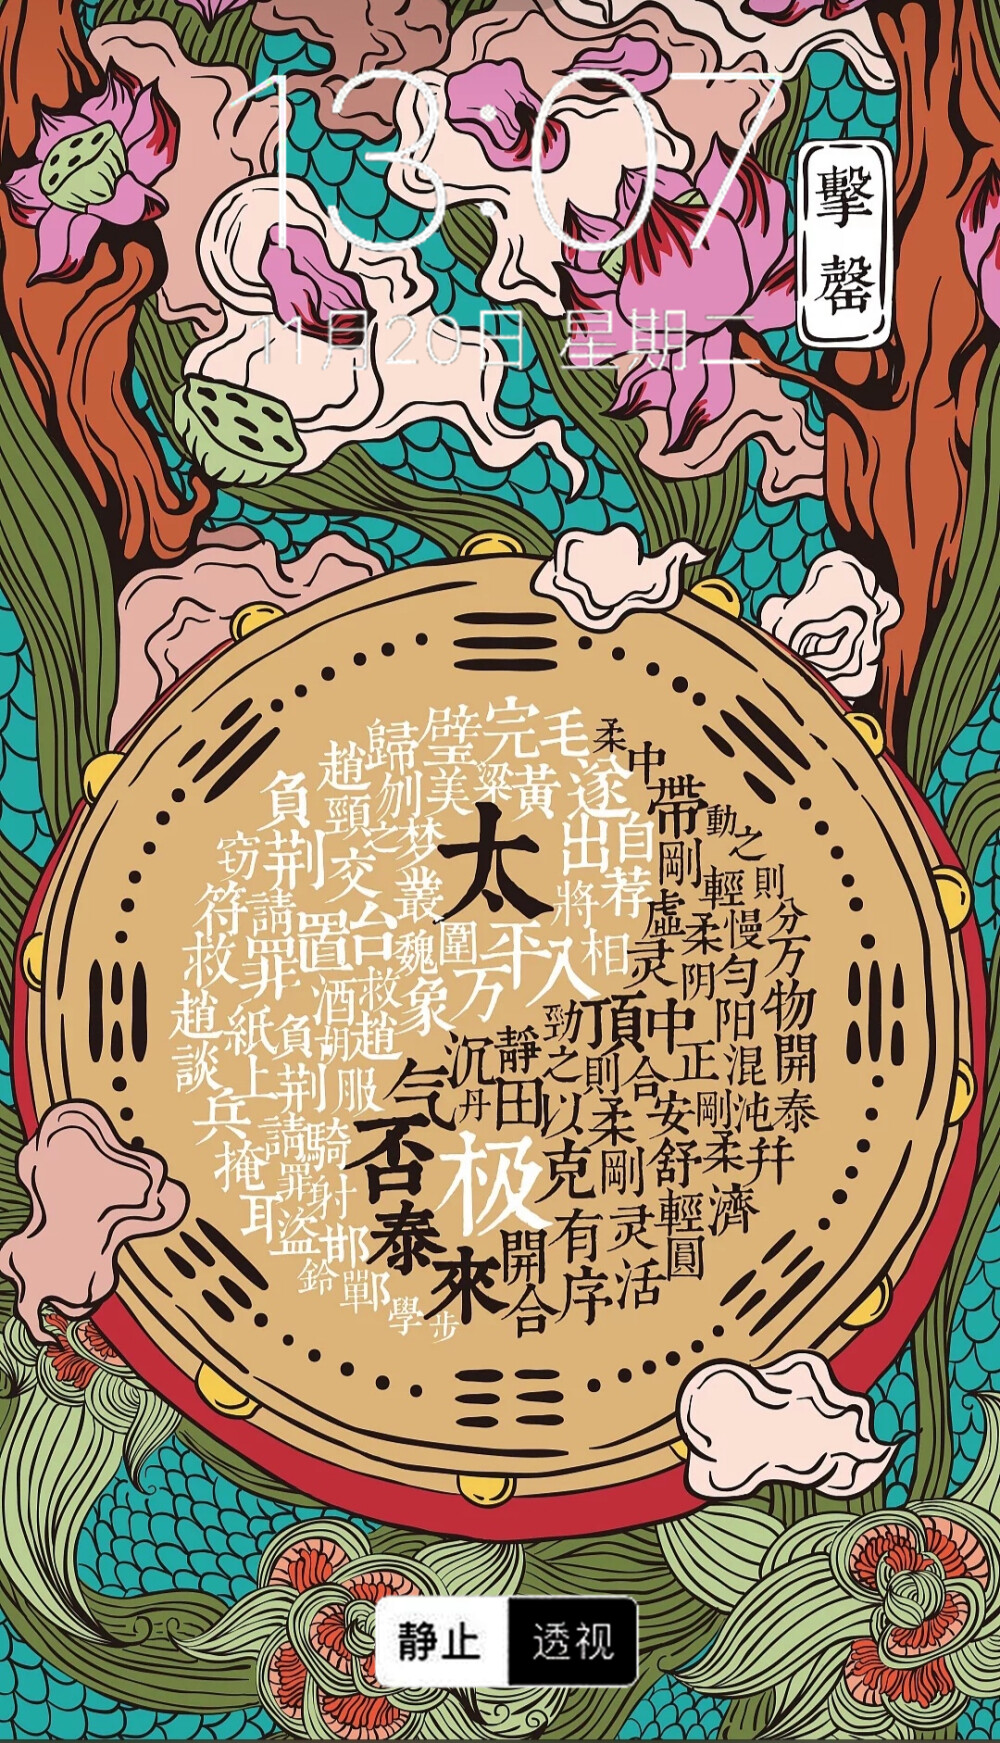 13:07
11月20日 星期二
擊
罄
歸璧完
毛遂自荐
趙美粱黃
柔中帶剛
負荆請罪
刎頸之交
梦
動之則分
出將入相
窃符救趙
叢台置酒
太
輕慢勻
柔
虛灵頂勁
圍魏救趙
平
万象
阴阳混沌
万物開泰
紙上談兵
負荆請罪
胡服騎射
气沉丹田
靜之則合
中正安舒
以柔克剛
剛柔并濟
掩耳盗鈴
否
极
泰
來
開合有序
輕圓灵活
邯鄲學步
静止
透视